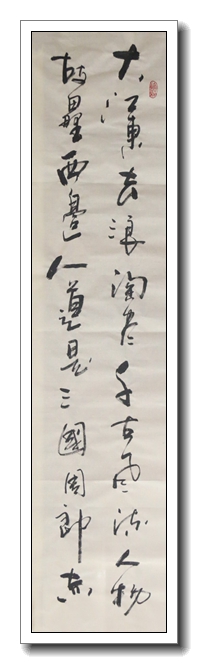 大江東去浪淘尽千古风流人物
故壘西邊人道是三國周郎赤